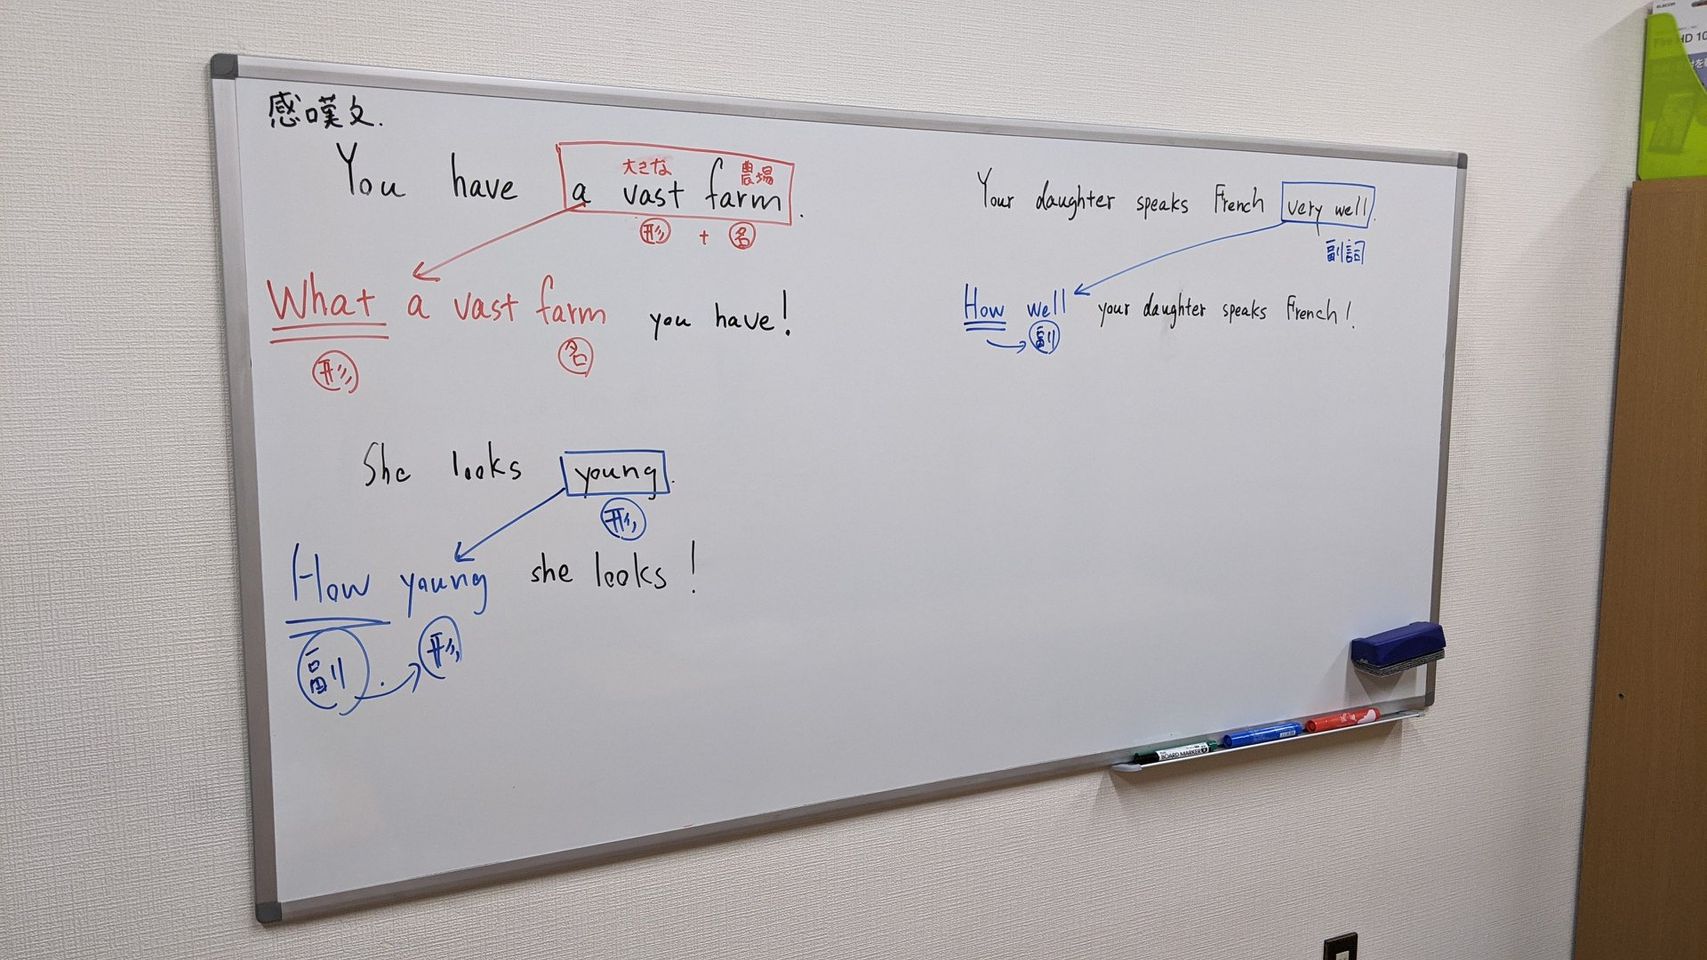 感嘆文.
You have a vast farm.
大きな 農場
形 + 名
What a vast farm you have!
形 名
She looks young.
形
How young she looks!
副 . 形
Your daughter speaks French very well.
副詞
How well your daughter speaks French!
副
BOARD MARKER
ELECOM
Fire HD 10